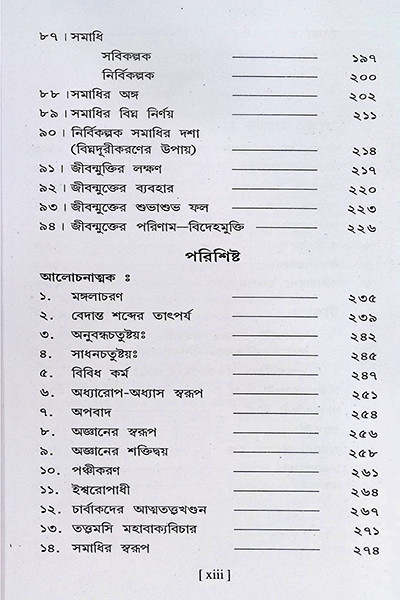 ৮৭। সমাধি
সবিকল্পক ১৯৭
নির্বিকল্পক ২০০
৮৮। সমাধির অঙ্গ ২০২
৮৯। সমাধির বিঘ্ন নির্ণয় ২১১
৯০। নির্বিকল্পক সমাধির দশা
(বিঘ্নদূরীকরণের উপায়) ২১৪
৯১। জীবন্মুক্তির লক্ষণ ২১৭
৯২। জীবন্মুক্তের ব্যবহার ২২০
৯৩। জীবন্মুক্তের শুভাশুভ ফল ২২৩
৯৪। জীবন্মুক্তের পরিণাম—বিদেহমুক্তি ২২৬
পরিশিষ্ট
আলোচনাত্মক :
১. মঙ্গলাচরণ ২৩৫
২. বেদান্ত শব্দের তাৎপর্য ২৩৯
৩. অনুবন্ধচতুষ্টয়ঃ ২৪২
৪. সাধনচতুষ্টয়ঃ ২৪৫
৫. বিবিধ কর্ম ২৪৭
৬. অধ্যারোপ-অধ্যাস স্বরূপ ২৫১
৭. অপবাদ ২৫৪
৮. অজ্ঞানের স্বরূপ ২৫৬
৯. অজ্ঞানের শক্তিদ্বয় ২৫৮
১০. পঞ্চীকরণ ২৬১
১১. ইশ্বরোপাধী ২৬৪
১২. চার্বাকদের আত্মতত্তখণ্ডন ২৬৭
১৩. তত্তমসি মহাবাক্যবিচার ২৭১
১৪. সমাধির স্বরূপ ২৭৪
[ xiii ]